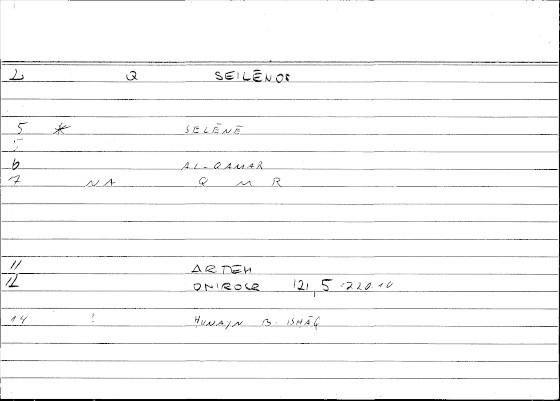 2 Q SEILĒNOS
5 * SELĒNĒ
6 AL-QAMAR
7 NA Q M R
11 ARTEM
12 ONIROCR 121,5 220.10
14 ! HUNAYN B. ISHĀQ